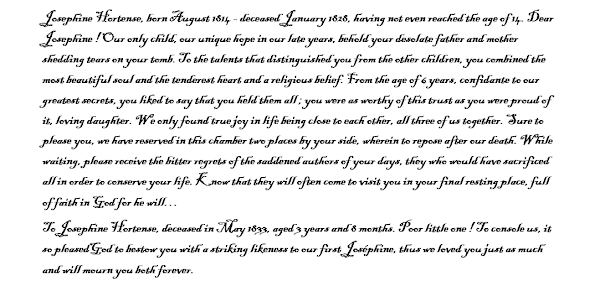 Josephine Hortense, born August 1814 - deceased January 1828, having not even reached the age of 14. Dear
Josephine ! Our only child, our unique hope in our late years, behold your desolate father and mother
shedding tears on your tomb. To the talents that distinguished you from the other children, you combined the
most beautiful soul and the tenderest heart and a religious belief. From the age of 6 years, confidante to our
greatest secrets, you liked to say that you held them all ; you were as worthy of this trust as you were proud of
it, loving daughter. We only found true joy in life being close to each other, all three of us together. Sure to
please you, we have reserved in this chamber two places by your side, wherein to repose after our death. While
waiting, please receive the bitter regrets of the saddened authors of your days, they who would have sacrificed
all in order to conserve your life. Know that they will often come to visit you in your final resting place, full
of faith in God for he will...
To Josephine Hortense, deceased in May 1833, aged 3 years and 8 months. Poor little one ! To console us, it
so pleased God to bestow you with a striking likeness to our first Joséphine, thus we loved you just as much
and will mourn you both forever.